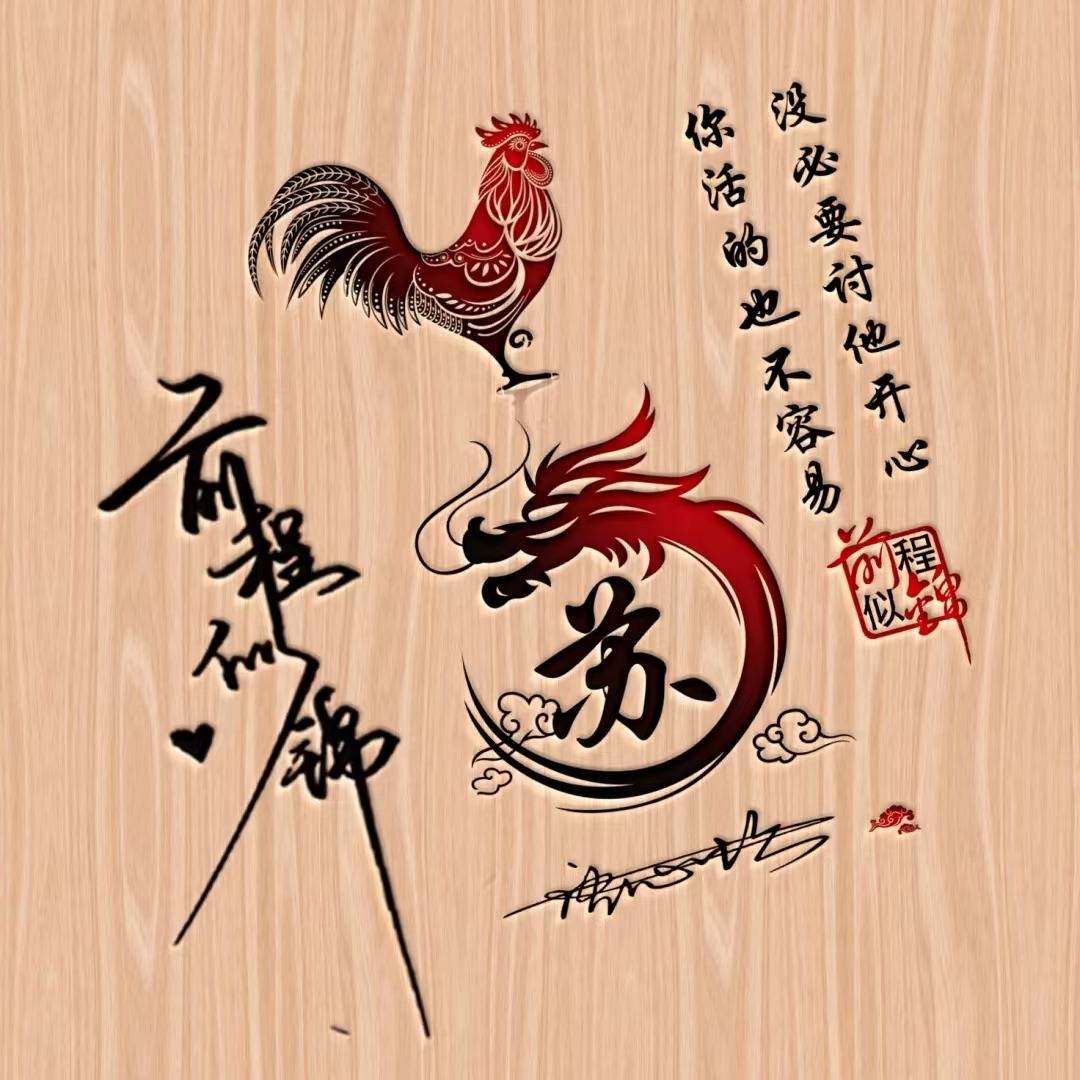 没必要讨他开心
你活的也不容易
前程似锦
苏
前程
似锦